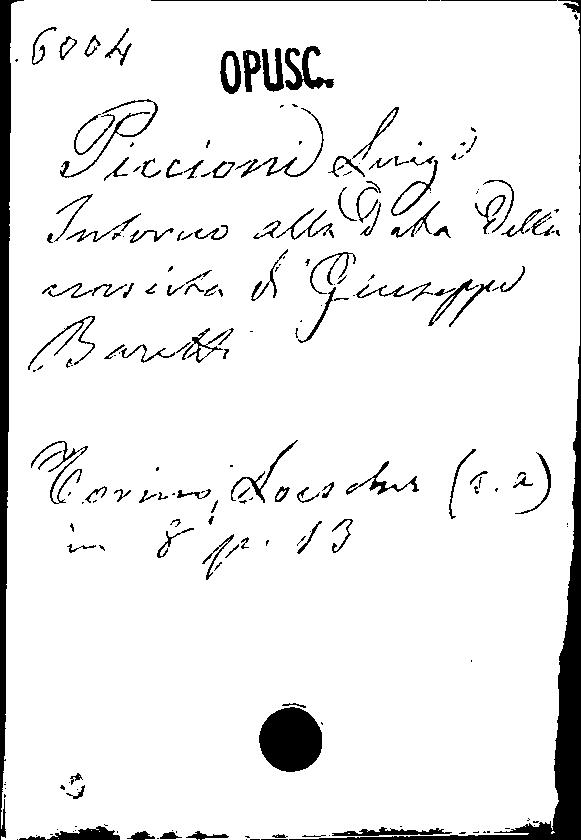 6004
OPUSC.
Piccioni Luigi
Intorno alla Data Della
nascita di Giuseppe
Baretti
Torino, Loescher (s. a)
in 8 p. 13